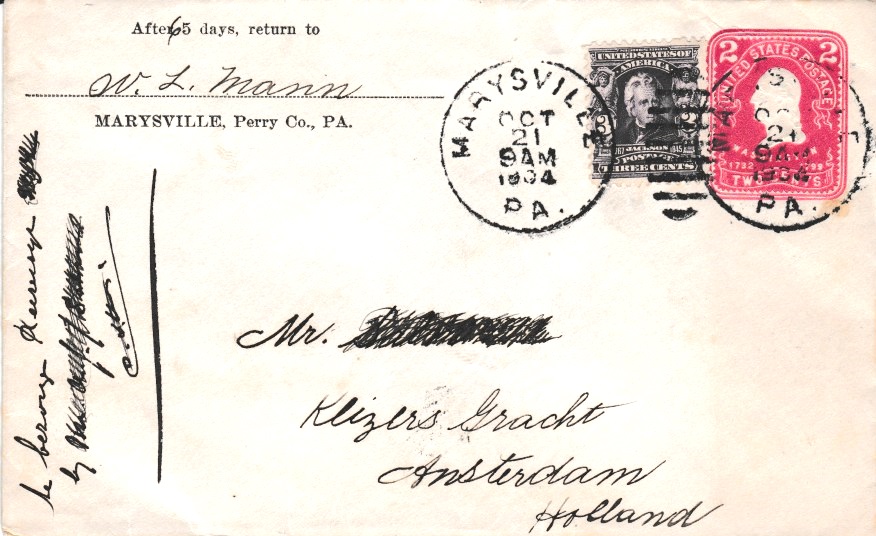 After 65 days, return to
W. L. Mann
MARYSVILLE, Perry Co., PA.
MARYSVILLE
OCT
21
9AM
1904
PA.
UNITED STATES OF
AMERICA
3
JACKSON 1845
POSTAGE
THREE CENTS
2 2
UNITED STATES POSTAGE
1732
TWO CENTS
MA
21
9AM
1904
PA.
Mr.
Keizers Gracht
Amsterdam
Holland
te bezorgen
by